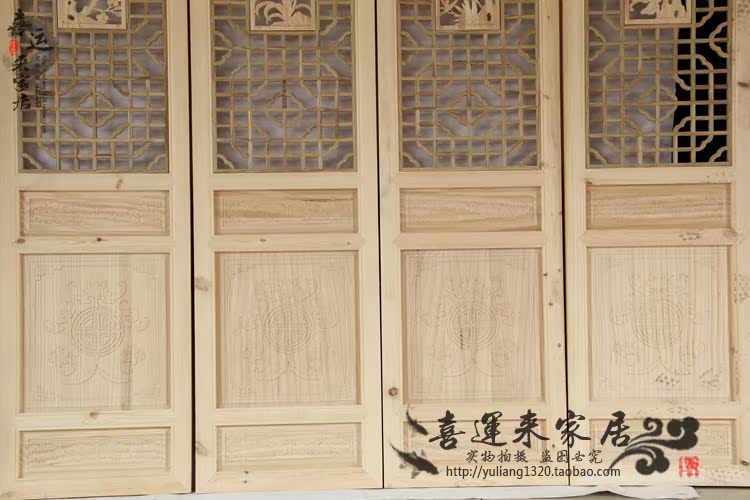 喜运来家居
喜運来家居
实物拍摄 盗图必究
http://yuliang1320.taobao.com